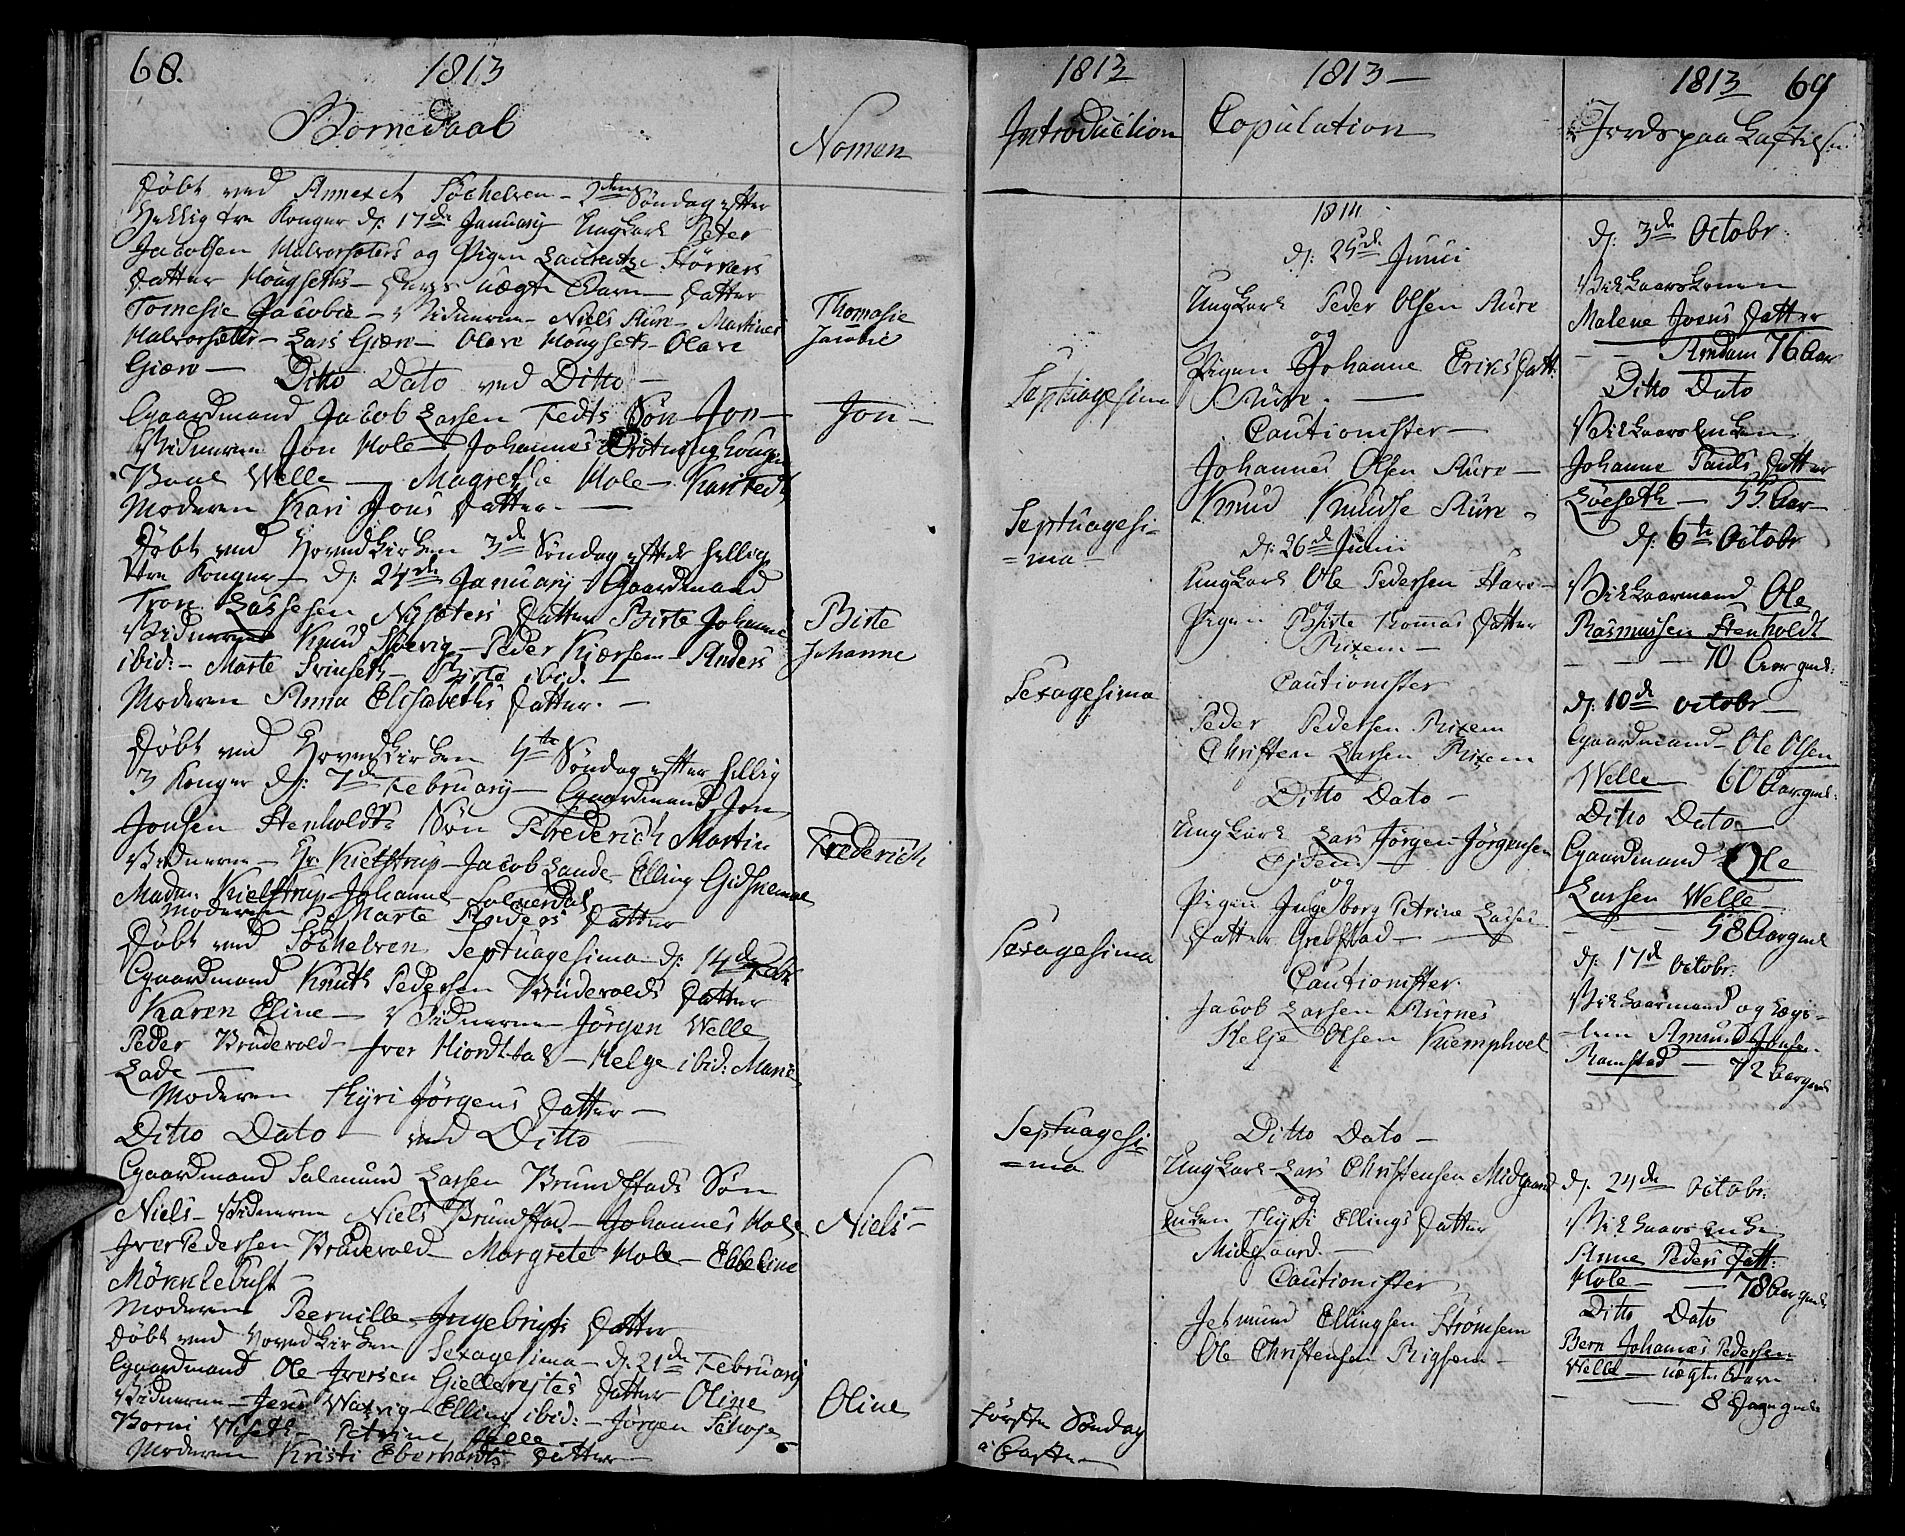 68. 1813
Børnedaab
Nomen
Døbt ved Annexet Søchelven - 2den Søndag efter
Hellig tre Konger d: 17de January Ungkarl Peter
Jacobsen Halvorsæters og Pigen Laurentze Størkers
Datter Hougseths - Deres uægte Barn Datter
Tomesie Jacobie - Vidnerne Niels Aure - Martines
Halvorsæter - Lars Giære - Olave Hougseth - Olave
Giære -
Thomasie
Jacobie
Ditto Dato ved Ditto -
Gaardmand Jacob Larsen Tedts Søn Jon -
Vidnerne Jon Hole - Johannes
Paul Welle - Magrethe Hole - Kari Tedt
Moderen Kari Jons Datter. -
Jon -
Døbt ved Hovedkirken 3de Søndag efter hellig
tre Konger - d: 24de January Gaardmand
Tron Lassesen Nysæters Datter Birte Johanne
Vidnerne Knud - Peder Kiersem - Anders
ibid: - Marte Svinseth - Birte ibid. -
Moderen Anna Elisabeths Datter. -
Birte
Johanne
Døbt ved Hovedkirken 4te Søndag efter hellig
3 Konger d: 7de February - Gaardmand Jon
Jonsen Stenholdts Søn Frederich Martin
Vidnerne - Hr Kielstrup - Jacob Lande - Elling Gidskemoe
Madm: Kielstrup - Johanne
Moderen Marte Anders Datter
Frederich
Døbt ved Søchelven Septuagesima d: 14de Febr
Gaardmand Knuth Pedersen Brudevolds Datter
Karen Eline - Vidnerne Jørgen Welle
Peder Brudevold - Iver Hiortdal - Helge ibid: Marie
Lade -
Moderen Thyri Jørgens Datter -
Ditto Dato - ved Ditto -
Gaardmand Salamund Larsen Brundstads Søn
Niels - Vidnerne Niels Brundstad - Johannes Hole
Iver Pedersen Brudevold - Margrete Hole - Ebbeline
Møkklebust -
Moderen Peernille Ingebrigts Datter
Niels -
Døbt ved Hovedkirken Sexagesima - d: 21de February
Gaardmand Ole Iversen Giellesvtes Datter Oline
Vidnerne - Jens Watvig - Elling ibid: - Jørgen
Borni - Petrine Welle -
Moderen Kristi Eberhardts Datter -
Oline
1813
Introduction
Septuagesima
Septuagesi-
=ma -
Sexagesima
Sexagesima
Septuagesi-
=ma
første Søndag
i Faste -
1813 -
Copulation
1814
d: 25de Junii
Ungkarl Peder Olsen Aure
og
Pigen Johanne Eriks Datt:
Aure. -
Cautionister -
Johannes Olsen Aure -
Knud Knudse Aure -
d: 26de Junii
Ungkarl Ole Pedersen Stave -
og
Pigen Birte Thomas Datter
Riksem -
Cautionister
Peder Pedersen Rixem
Christen Larsen Rixem
Ditto Dato -
Ungkarl Lars Jørgen Jørgensen
Eidem -
og
Pigen Ingeborg Petrine Lasses
Datter Grebstad -
Cautionister.
Jacob Larsen Aurnes
Helje Olsen Kiemphoel
Ditto Dato -
Ungkarl Lars Christensen Midgaard
og
Enken Thyri Ellings Datter
Midgaard. -
Cautionister
Jetmund Ellingsen Strømsem
Ole Christensen Rigsem -
1813 69
Jordspaakastelsen
d: 3de Octobr.
Vilkaarskonen
Malene Joens Datter
- - Amdam 76 Aar
Ditto Dato
Vilkaarsenken
Johanne Pauls Datter
Løeseth - 55 Aar
d: 6te Octobr
Vilkaarmand Ole
Rasmussen Stenholdt
- - - 70 Aar gml:
d: 10de Octobr -
Gaardmand Ole Olsen
Welle - 60 Aar gml:
Ditto Dato -
Gaardmand Ole
Larsen Welle
- - - 58 Aar gml
d: 17de Octobr.
Vilkaarmand og Lægs-
-lem Amund Jonsen
Ramstad - 72 Aar gml
d: 24de Octobr.
Vilkaarsenke
Anne Peders Datt:
Hole - 78 Aar gml
Ditto Dato
Bern Johannes Pedersen
Welle - uægte Barn
- - 8 Dage gml